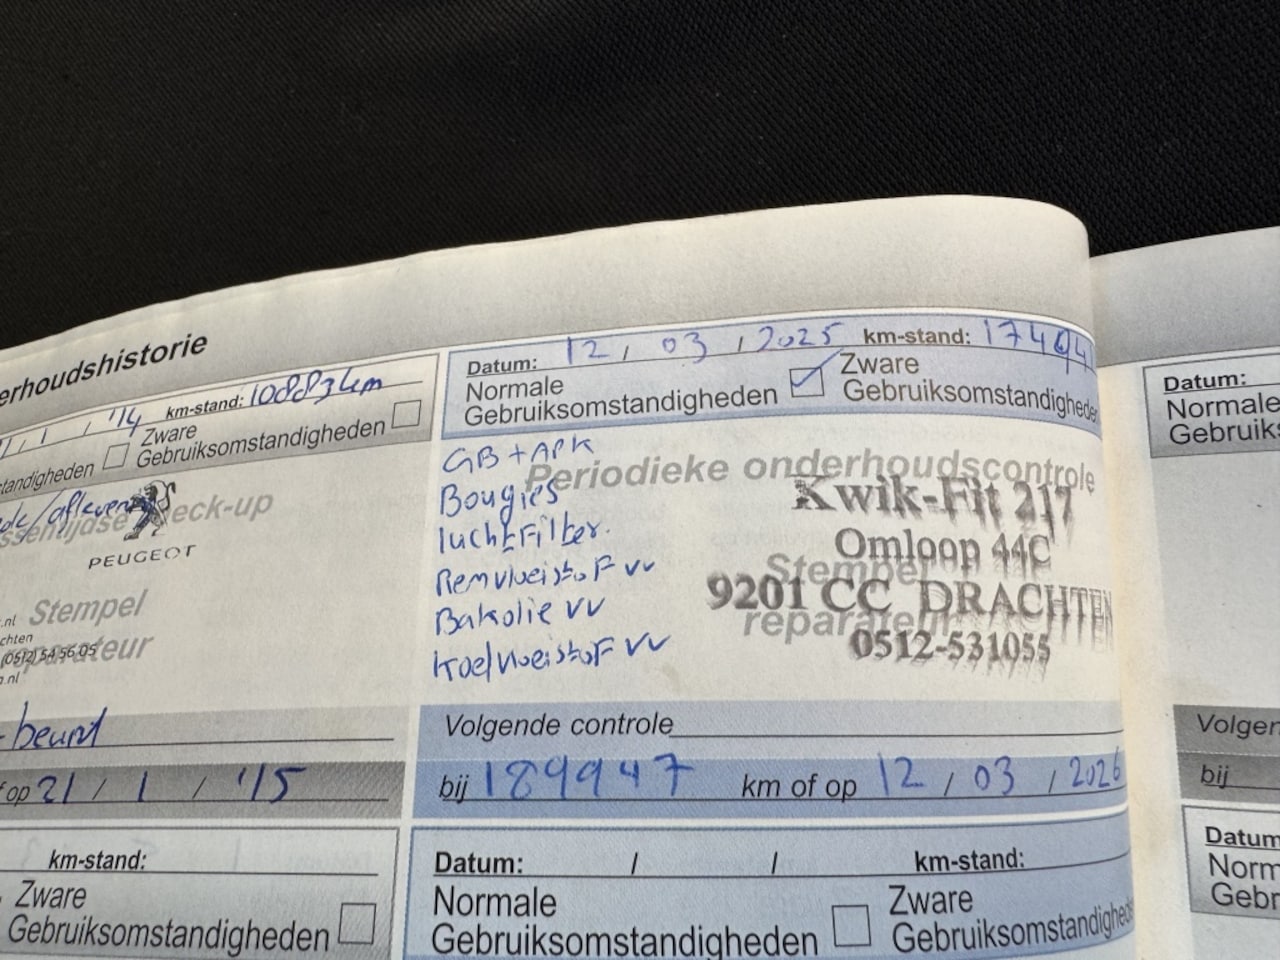 erhoudshistorie
/ 1 / '14 km-stand: 108834km
Zware
tandigheden Gebruiksomstandigheden
/aflever
ssentijdse eck-up
PEUGEOT
.nl Stempel
chten
(0512) 54 56 05
reparateur
.nl
-beurt
op 21 / 1 / '15
km-stand:
Zware
Gebruiksomstandigheden
Datum: 12 / 03 / 2025 km-stand:
Normale Zware
Gebruiksomstandigheden Gebruiksomstandighede
GB + APK
Periodieke onderhoudscontrole
Bougies
Kwik-Fit 217
luchtFilter
Omloop 44C
Stempel
Remvloeistof vv
9201 CC DRACHTEN
Bakolie vv
reparateur
0512-531055
Koelvloeistof vv
Volgende controle
bij 189947 km of op 12 / 03 / 2026
Datum: / / km-stand:
Normale Zware
Gebruiksomstandigheden Gebruiksomstandighede
Datum:
Normale
Gebruiks
Volgen
bij
Datum
Norm
Gebr